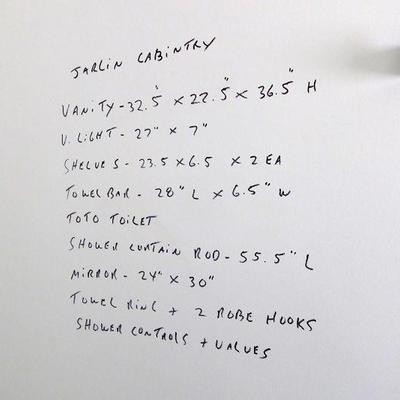 JARLIN CABINTRY
VANITY - 32.5" x 22.5" x 36.5" H
V. LIGHT - 27" x 7"
SHELVES - 23.5 x 6.5 x 2 EA
TOWEL BAR - 28" L x 6.5" W
TOTO TOILET
SHOWER CURTAIN ROD - 55.5" L
MIRROR - 24" x 30"
TOWEL RING + 2 ROBE HOOKS
SHOWER CONTROLS + VALVES